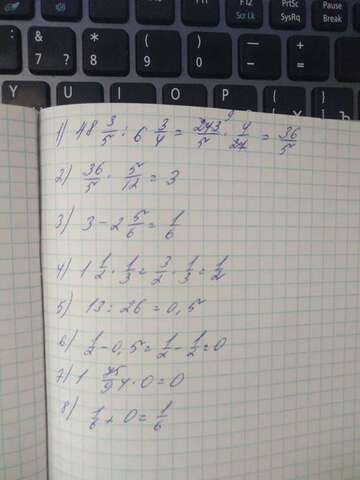 F12
PrtSc
Pause
Scr Lk
SysRq
Break
&
7
?
*
8
(
9
)
0
_
-
+
=
Y
U
I
O
P
1) 48 3/5 : 6 3/4 = 243/5 · 4/27 = 36/5
2) 36/5 · 5/12 = 3
3) 3 - 2 5/6 = 1/6
4) 1 1/2 · 1/3 = 3/2 · 1/3 = 1/2
5) 13 : 26 = 0,5
6) 1/2 - 0,5 = 1/2 - 1/2 = 0
7) 1 · 0 = 0
8) 1/6 + 0 = 1/6